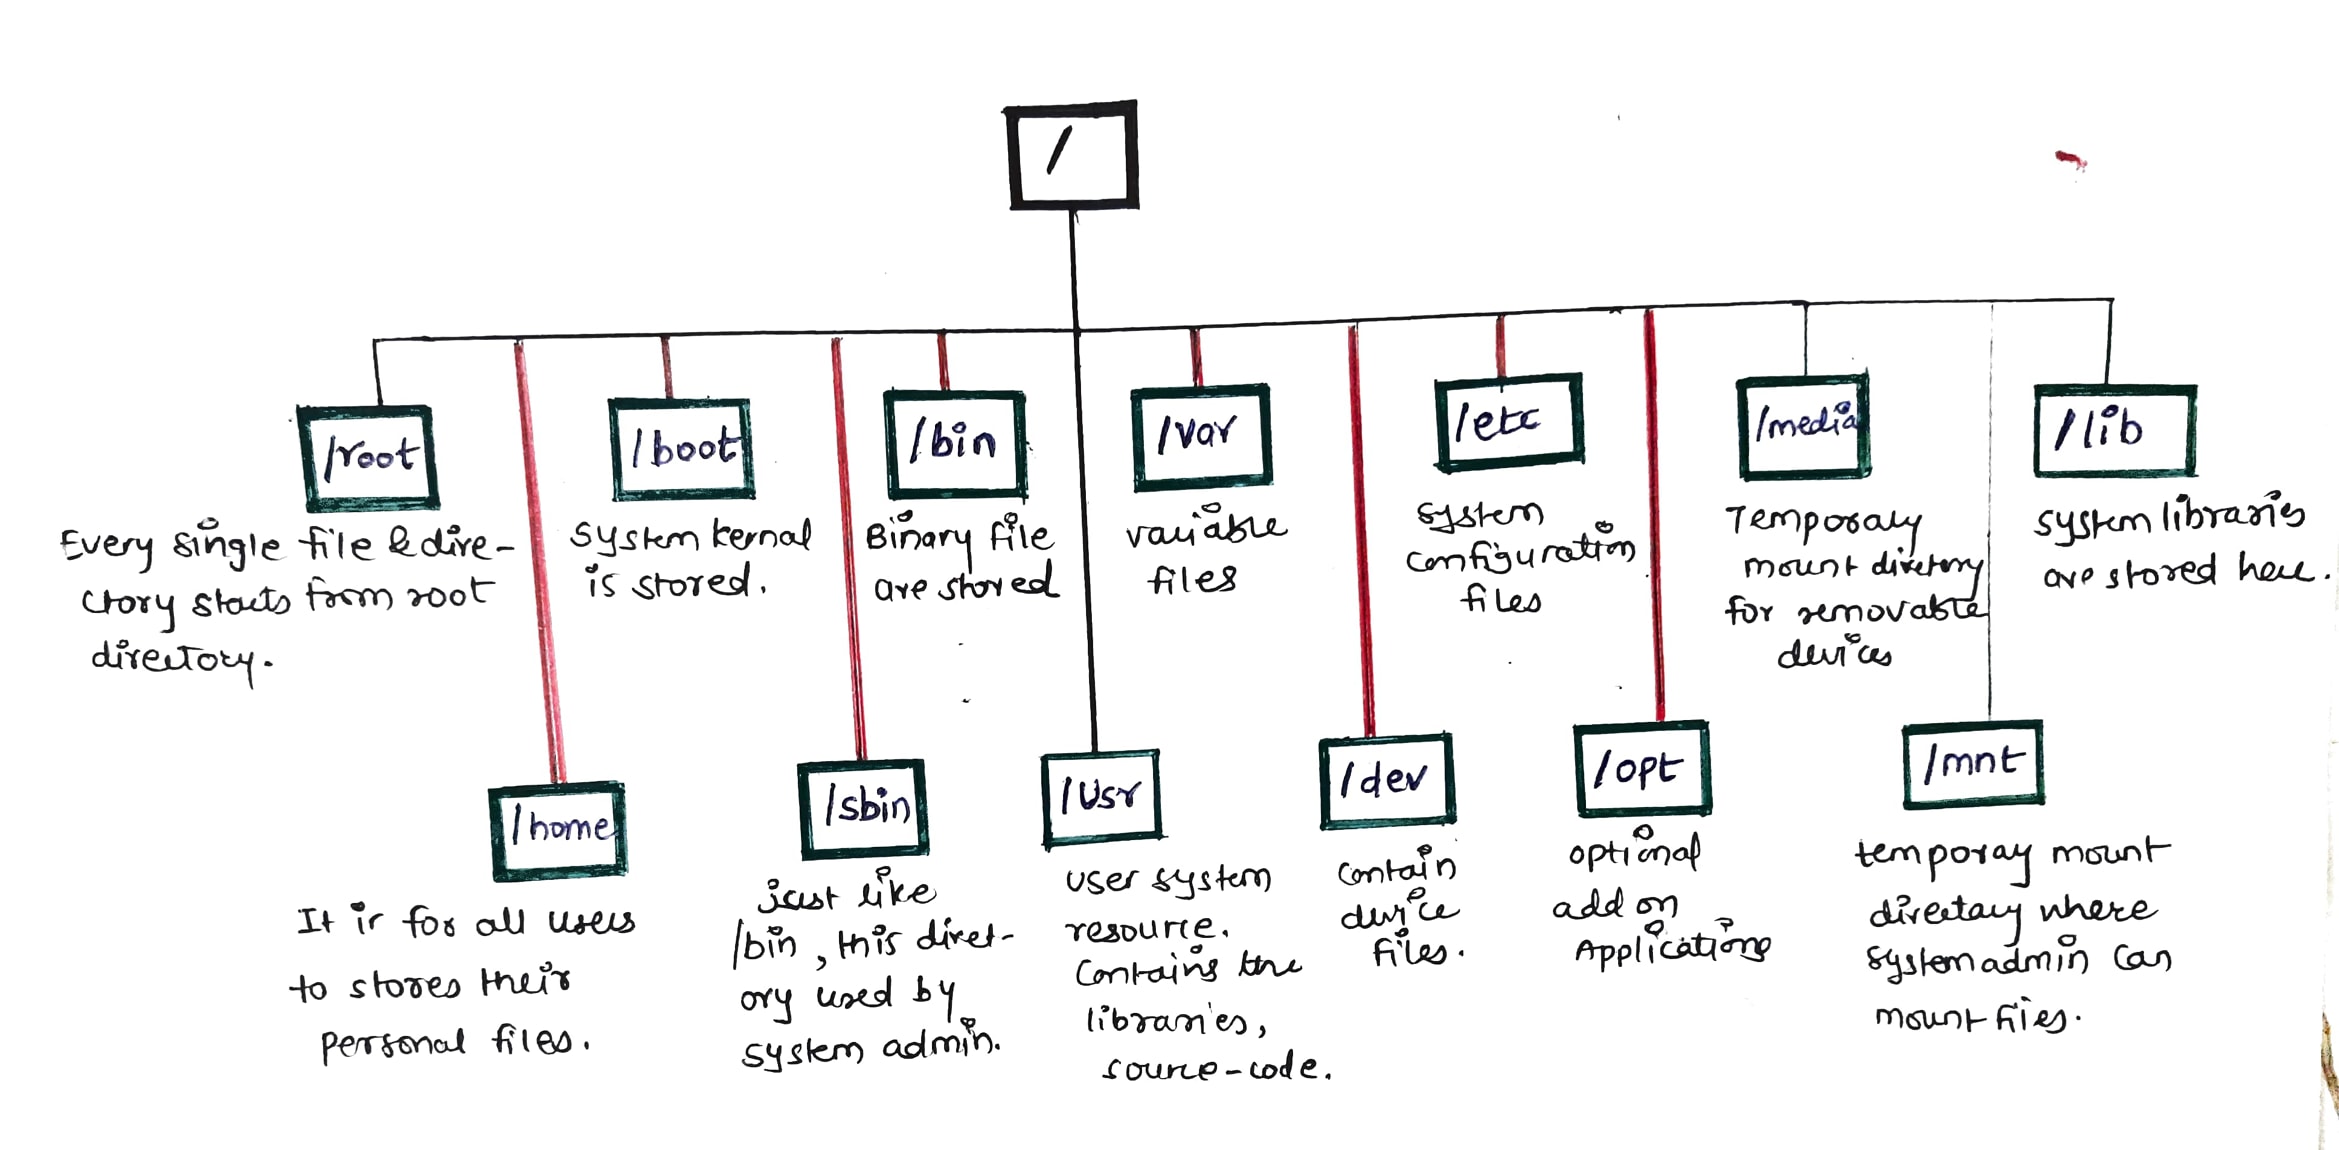 /
/root
Every single file & dire-
ctory starts from root
directory.
/boot
system kernal
is stored.
/bin
Binary file
are stored
/var
variable
files
/etc
system
configuration
files
/media
Temporary
mount directory
for removable
devices
/lib
system libraries
are stored here.
/home
It is for all users
to stores their
personal files.
/sbin
just like
/bin, this direct-
ory used by
system admin.
/usr
user system
resource.
Contains the
libraries,
source-code.
/dev
Contain
device
files.
/opt
optional
add on
Applications
/mnt
temporay mount
directory where
system admin can
mount files.